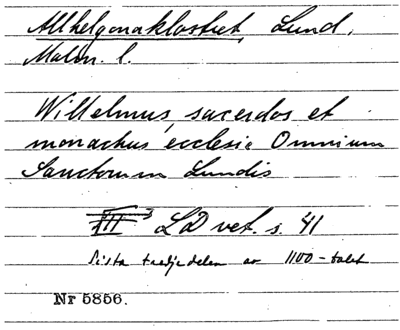 Allhelgonaklostret, Lund,
Malm. l.
Willelmus, sacerdos et
monachus ecclesie Omnium
Sanctorum Lundis
LD vet. s. 41
Sista tredjedelen av 1100-talet
Nr 5856.